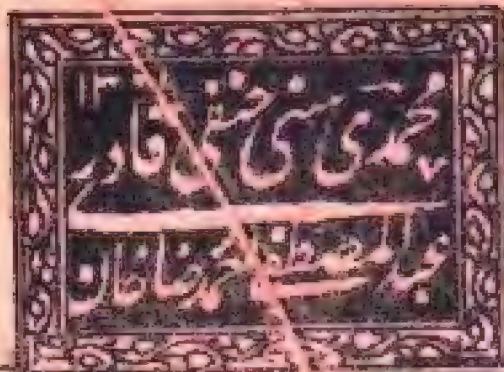 محمدی سنی حنفی قادری
عبدالمصطفیٰ احمد رضا خان